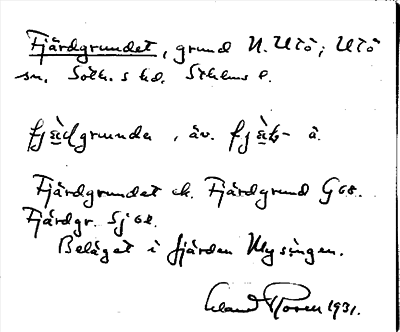 Fjärdgrundet, grund N. Utö; Utö
sn. Soth. s hd. Sthlms l.
fjä̀ḍgrunde , äv. fjä̀ḍ- a.
Fjärdgrundet ek. Fjärdgrund G 68.
Fjärdgr. Sjök.
Beläget i fjärden Mysingen.
Roland Roren 1931.